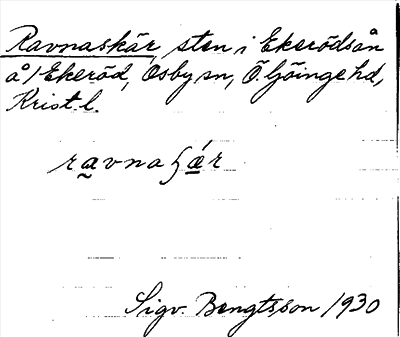 Ravnaskär, sten i Ekerödsån
å/Ekeröd, Osby sn, Ö. Göinge hd,
Krist. l.
Sigv. Bengtsson 1930